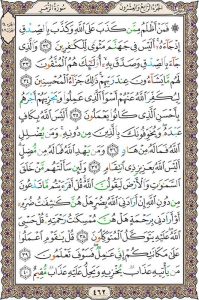 الجزء الرابع والعشرون سورة الزمر
۞ فَمَنْ أَظْلَمُ مِمَّن كَذَبَ عَلَى ٱللَّهِ وَكَذَّبَ بِٱلصِّدْقِ
إِذْ جَآءَهُۥٓ أَلَيْسَ فِى جَهَنَّمَ مَثْوًى لِّلْكَٰفِرِينَ ٣٢ وَٱلَّذِى
جَآءَ بِٱلصِّدْقِ وَصَدَّقَ بِهِۦٓ أُو۟لَٰٓئِكَ هُمُ ٱلْمُتَّقُونَ ٣٣
لَهُم مَّا يَشَآءُونَ عِندَ رَبِّهِمْ ذَٰلِكَ جَزَآءُ ٱلْمُحْسِنِينَ ٣٤
لِيُكَفِّرَ ٱللَّهُ عَنْهُمْ أَسْوَأَ ٱلَّذِى عَمِلُوا۟ وَيَجْزِيَهُمْ أَجْرَهُم
بِأَحْسَنِ ٱلَّذِى كَانُوا۟ يَعْمَلُونَ ٣٥ أَلَيْسَ ٱللَّهُ بِكَافٍ
عَبْدَهُۥ وَيُخَوِّفُونَكَ بِٱلَّذِينَ مِن دُونِهِۦ وَمَن يُضْلِلِ
ٱللَّهُ فَمَا لَهُۥ مِنْ هَادٍ ٣٦ وَمَن يَهْدِ ٱللَّهُ فَمَا لَهُۥ مِن مُّضِلٍّ
أَلَيْسَ ٱللَّهُ بِعَزِيزٍ ذِى ٱنتِقَامٍ ٣٧ وَلَئِن سَأَلْتَهُم مَّنْ خَلَقَ
ٱلسَّمَٰوَٰتِ وَٱلْأَرْضَ لَيَقُولُنَّ ٱللَّهُ قُلْ أَفَرَءَيْتُم مَّا تَدْعُونَ
مِن دُونِ ٱللَّهِ إِنْ أَرَادَنِىَ ٱللَّهُ بِضُرٍّ هَلْ هُنَّ كَٰشِفَٰتُ ضُرِّهِۦٓ
أَوْ أَرَادَنِى بِرَحْمَةٍ هَلْ هُنَّ مُمْسِكَٰتُ رَحْمَتِهِۦ قُلْ حَسْبِىَ
ٱللَّهُ عَلَيْهِ يَتَوَكَّلُ ٱلْمُتَوَكِّلُونَ ٣٨ قُلْ يَٰقَوْمِ ٱعْمَلُوا۟
عَلَىٰ مَكَانَتِكُمْ إِنِّى عَٰمِلٌ فَسَوْفَ تَعْلَمُونَ ٣٩
مَن يَأْتِيهِ عَذَابٌ يُخْزِيهِ وَيَحِلُّ عَلَيْهِ عَذَابٌ مُّقِيمٌ ٤٠
٤٦٢